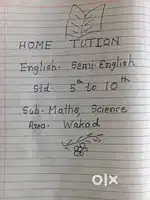 HOME TUTION
English. Semi-English
Std. 5th to 10th
Sub- Maths, Science
Area- Wakad
OLX